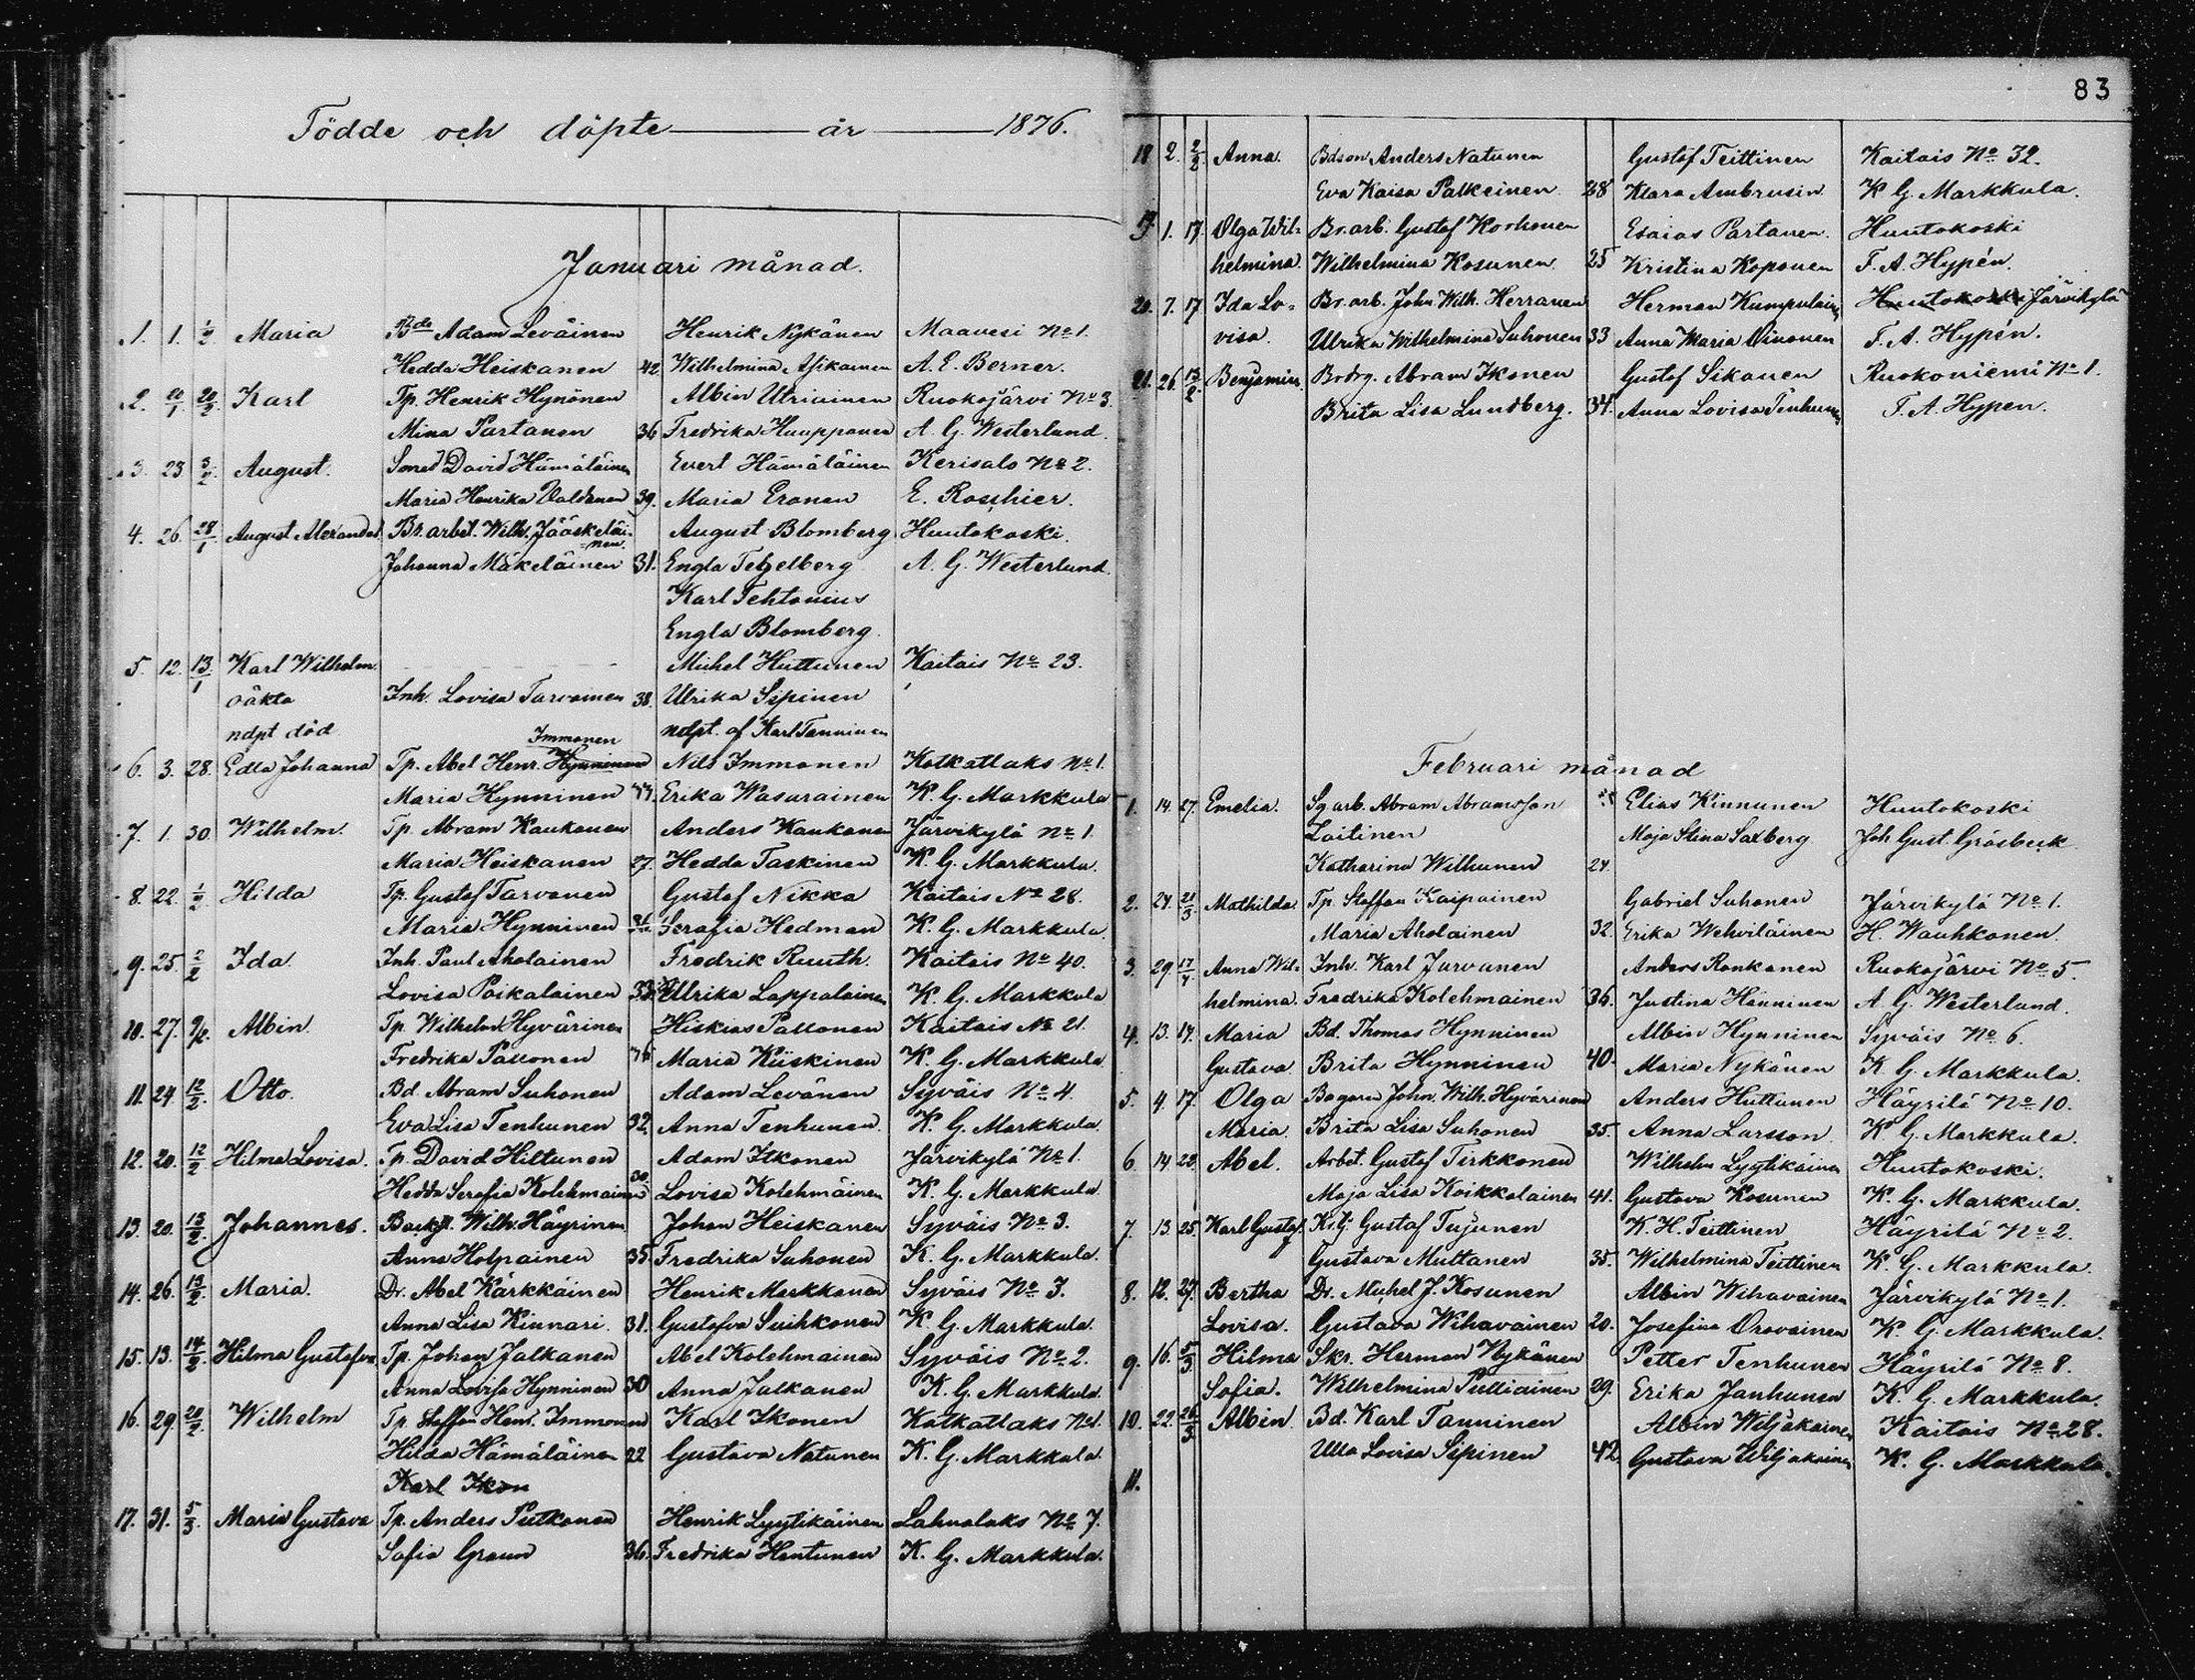 Födde och döpte — år — 1876.
Januari månad.
1. 1. 1/2 Maria Bde Adam Leväinen Henrik Nykänen Maavesi No 1.
Hedda Heiskanen 42. Wilhelmina Asikainen A. E. Berner.
2. 20/1. 20/3 Karl Tp. Henrik Hynönen Albin Utriainen Ruokojärvi No 3.
Mina Partanen 36 Fredrika Huupponen A. G. Westerlund.
3. 23 3/2 August. Smed David Hämäläinen Evert Hämäläinen Kerisalo No 2.
Maria Henrika 39. Maria Eronen E. Roschier.
4. 26. 28/1 August Alexander. Br. arbet. Wilh. Jääskeläi- August Blomberg Huutokoski.
nen.
Johanna Mäkeläinen 31. Engla Tegelberg A. G. Westerlund.
Karl Tehtonius
Engla Blomberg.
5. 12. 13/1 Karl Wilhelm. Mikel Huttunen Kaitais No 23.
oäkta Inh. Lovisa Tarvainen 38. Ulrika Sipinen
ndpt död ndpt. af Karl Tanninen
Immonen
6. 3. 28. Edla Johanna Tp. Abel Henr. Hynninen Nils Immonen Kotkatlaks No 1.
Maria Hynninen 44. Erika Wasarainen K. G. Markkula
7. 1. 30 Wilhelm. Tp. Abram Kaukanen Anders Kaukanen Järvikylä No 1.
Maria Heiskanen 27. Hedda Taskinen K. G. Markkula.
8. 22. 1/2 Hilda Tp. Gustaf Tarvanen Gustaf Nikka Kaitais No 28.
Maria Hynninen 36. Serafia Hedman K. G. Markkula.
9. 25. 2/2 Ida. Inh. Paul Aholainen Fredrik Ruuth. Kaitais No 40.
Lovisa Poikalainen 33. Ulrika Lappalainen K. G. Markkula
10. 27. 9/2. Albin. Tp. Wilhelm Hyvärinen Hiskias Pallonen Kaitais No 21.
Fredrika Pallonen 36 Maria Kiiskinen K. G. Markkula
11. 24. 12/2. Otto. Bd. Abram Suhonen Adam Levänen Syväis No 4.
Eva Lisa Tenhunen 32. Anna Tenhunen. K. G. Markkula.
12. 20. 12/2 Hilma Lovisa. Tp. David Hiltunen Adam Itkonen Järvikylä No 1.
Hedda Serafia Kolehmainen 30 Lovisa Kolehmäinen K. G. Markkula
13. 20. 13/2. Johannes. Wilh. Häyrinen Johan Heiskanen Syväis No 3.
Anna Holpainen 35. Fredrika Suhonen K. G. Markkula.
14. 26. 13/2 Maria. Dr. Abel Kärkkäinen Henrik Markkanen Syväis No 3.
Anna Lisa Kinnari. 31. Gustafva Suihkonen K. G. Markkula.
15. 13. 14/2 Hilma Gustafva Tp. Johan Jalkanen Abel Kolehmainen Syväis No 2.
Anna Lovisa Hynninen 30 Anna Jalkanen K. G. Markkula.
16. 29. 20/2 Wilhelm Tp. Staffan Henr. Immonen Karl Ikonen Kotkatlaks No 1.
Hilda Hämäläinen 22 Gustava Natunen K. G. Markkala.
Karl Ikon
17. 31. 5/3. Maria Gustava Tp. Anders Putkonen Henrik Lyytikäinen Lahnalaks No 7.
Sofia Graun 36. Fredrika Hentunen K. G. Markkula.
83
18 2. 2/2 Anna. Bdson Anders Natunen Gustaf Teittinen Kaitais No 32.
Eva Kaisa Palkeinen 28 Klara Ambrusin K. G. Markkula.
19. 1. 17. Olga Wil- Br. arb. Gustaf Korhonen Esaias Partanen. Huutokoski
helmina. Wilhelmina Kosunen. 25 Kristina Koponen F. A. Hypén.
20. 7. 17 Ida Lo- Br. arb. John Wilh. Herranen Herman Kumpulainen Huutokoski Järvikylä
visa. Ulrika Wilhelmina Suhonen 33 Anna Maria Oinonen F. A. Hypén.
21. 26. 13/2 Benjamin Brdrg. Abram Ikonen Gustaf Sikanen Ruokoniemi No 1.
Brita Lisa Lundberg. 34. Anna Lovisa Tenhunen F. A. Hypen.
Februari månad
1. 14. 27. Emelia. Sg arb. Abram Abramsson Elias Kinnunen Huutokoski
Laitinen Maja Stina Saxberg Joh Gust. Gråsbeck
Katharina Wilhunen 24.
2. 24. 21/3 Mathilda. Tp. Staffan Kaipainen Gabriel Suhonen Järvikylä No 1.
Maria Aholainen 32. Erika Wehviläinen H. Wauhkonen.
3. 29. 17/4 Anna Wil- Inh. Karl Jarvanen Anders Ronkanen Ruokojärvi No 5.
helmina. Fredrika Kolehmainen 36. Justina Hänninen A. G. Westerlund.
4. 13. 14. Maria Bd. Thomas Hynninen Albin Hynninen Syväis No 6.
Gustava. Brita Hynninen 40. Maria Nykänen K. G. Markkula.
5. 4. 17. Olga Bagaren John. Wilh. Hyvärinen Anders Huttunen Häyrilä No 10.
Maria. Brita Lisa Suhonen 35. Anna Larsson. K. G. Markkula.
6. 14 23. Abel. Arbet. Gustaf Tirkkonen Wilhelm Lyytikäinen Huutokoski.
Maja Lisa Koikkalainen 41. Gustava Kosunen K. G. Markkula.
7. 13. 25. Karl Gustaf. Kr.Gj Gustaf Tujunen K. H. Teittinen Häyrilä No 2.
Gustava Muttanen 35. Wilhelmina Teittinen K. G. Markkula.
8. 12. 27. Bertha Dr. Michel J. Kosunen Albin Wihavainen Järvikylä No 1.
Lovisa. Gustava Wihavainen 20. Josefina Oravainen K. G. Markkula.
9. 16. 5/3 Hilma Skr. Herman Nykänen Petter Tenhunen Häyrilä No 8.
Sofia. Wilhelmina Pulliainen 29. Erika Janhunen K. G. Markkula.
10. 22. 26/3 Albin. Bd. Karl Tanninen Albin Wiljakainen Kaitais No 28.
Ulla Lovisa Sipinen 42 Gustava Wiljakainen K. G. Markkula.
11.